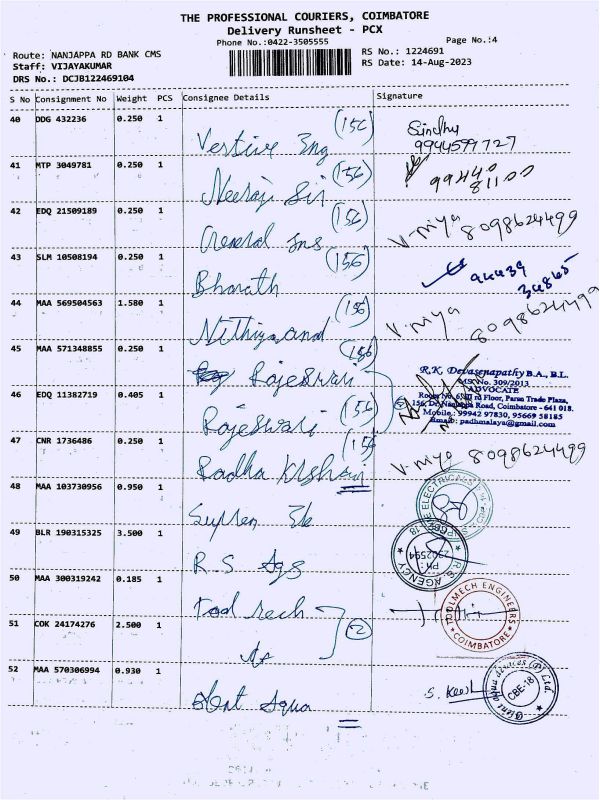 THE PROFESSIONAL COURIERS, COIMBATORE
Delivery Runsheet - PCX
Phone No.:0422-3505555
Page No.:4
Route: NANJAPPA RD BANK CMS
RS No.: 1224691
Staff: VIJAYAKUMAR
RS Date: 14-Aug-2023
DRS No.: DCJB122469104
S No Consignment No Weight PCS Consignee Details Signature
40 DDG 432236 0.250 1 Eng (156) Sindhu
9944599727
41 MTP 3049781 0.250 1 Neeraj Sir (156) 99440
81100
42 EDQ 21509189 0.250 1 General Ins (156) V. niya 8098624499
43 SLM 10508194 0.250 1 Bharath (156) 94439
34865
44 MAA 569504563 1.580 1 Nithiyanand (156) V. niya 8098624499
45 MAA 571348855 0.250 1 Rajeswari (156)
R.K. Devasenapathy B.A., B.L.
MS. No. 309/2013
ADVOCATE
46 EDQ 11382719 0.405 1 Rajeswari (156)
Floor, Paras Trade Plaza,
156, Dr. Nanjappa Road, Coimbatore - 641 018.
Mobile: 99942 97830, 95669 58185
Email: padhmalaya@gmail.com
47 CNR 1736486 0.250 1 Radha Krishnan (156) V. niya 8098624499
48 MAA 103730956 0.950 1
49 BLR 190315325 3.500 1 R.S Ags R.S. AGENCY
50 MAA 300319242 0.185 1 Tool Mech TOOLMECH ENGINEERS
COIMBATORE
51 COK 24174276 2.500 1 2
52 MAA 570306994 0.930 1 Aqua CBE-18